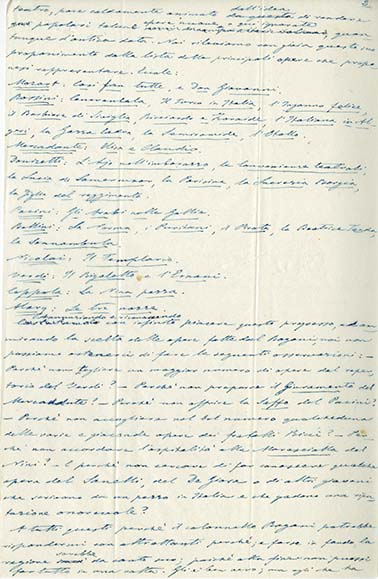 teatro, pare caldamente animato dall'idea di rendere
qui popolari talune opere nuove o qui ignorate, quan
tunque d'antica data. Noi rileviamo con gioia questo suo
proponimento dalla lista delle principali opere che propo
nesi rappresentare. Eccole:
Mozart: Così fan tutte, e Don Giovanni.
Rossini: Cenerentola, Il Turco in Italia, l'Inganno felice,
il Barbiere di Siviglia, Ricciardo e Zoraide, l'Italiana in Al-
geri, la Gazza ladra, la Semiramide, l'Otello.
Mercadante: Elisa e Claudio.
Donizetti: L'Ajo nell'imbarazzo, le Convenienze teatrali,
la Lucia di Lamermoor, la Parisina, la Lucrezia Borgia,
la figlia del reggimento.
Pacini: Gli Arabi nelle Gallie.
Bellini: La Norma, i Puritani, il Pirata, la Beatrice Tenda,
la Sonnambula.
Nicolai: Il Templario.
Verdi: Il Rigoletto e l'Ernani.
Coppola: La Nina pazza.
Alary: Le tre nozze
Annunziando e rimarcando
con infinito piacere questo progresso, e am
mirando la scelta delle opere fatta dal Bagani, noi non
possiamo astenerci di fare le seguenti osservazioni: -
Perchè non togliere un maggior numero di opere dal reper-
torio del Verdi? - Perchè non proporre il Giuramento del
Mercadante? - Perchè non offrire la Saffo del Pacini?
- Perchè non accogliere nel bel numero qualcheduna
delle varie e gioconde opere dei fratelli Ricci? - Per
chè non accordare l'ospitalità alla Marescialla del
Nini? - E perchè non cercare di far conoscere qualche
opera del Sanelli, del De Giosa e di altri giovani
che scrivono da un pezzo in Italia e che godono una ripu
tazione onorevole?
A tutti questi perchè il colonnello Bagani potrebbe
risponderci con altrettanti perchè, e forse in fondo la
ragione sarebbe da canto suo, poichè alla fine non puossi
far tutto in una volta. Gli è ben vero, ma egli che ha